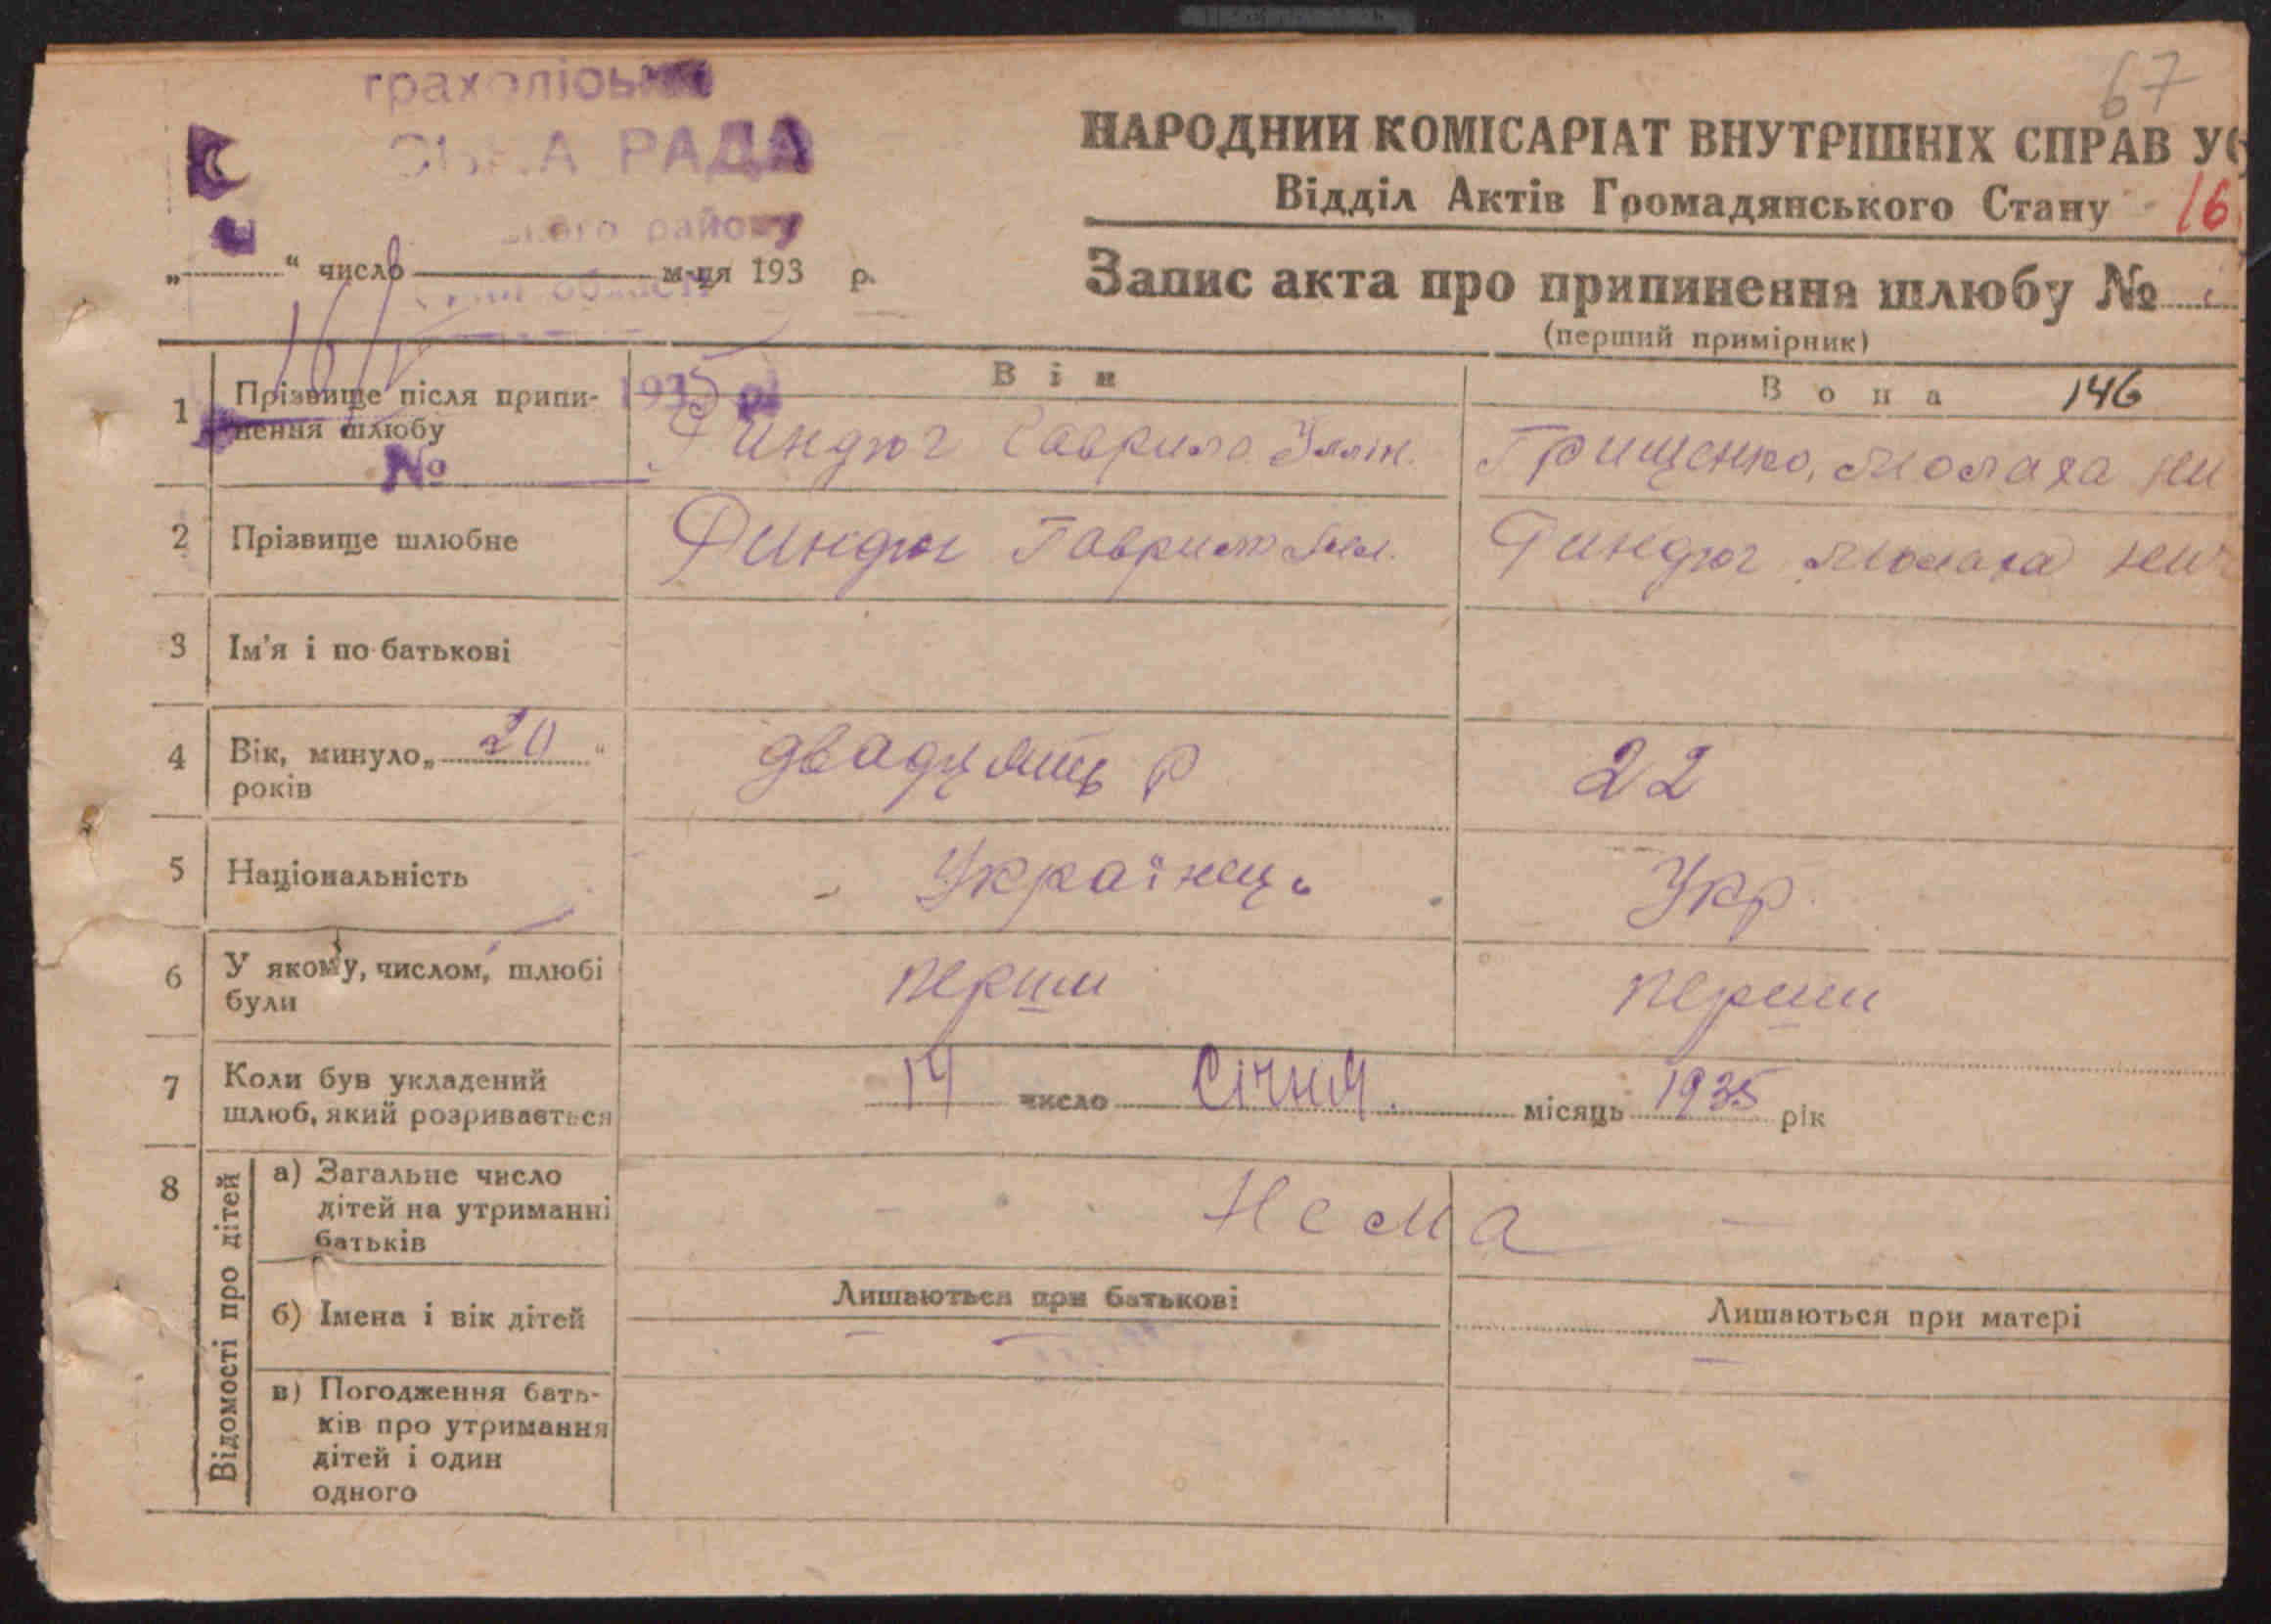 67
РАДА
району
НАРОДНИЙ КОМІСАРІАТ ВНУТРІШНІХ СПРАВ
Відділ Актів Громадянського Стану 16
„ “ число м-ця 193 р.
Запис акта про припинення шлюбу №
(перший примірник)
1935 р.
Він
Вона 146
1 Прізвище після припи-
нення шлюбу
№
Грищенко,
2 Прізвище шлюбне
3 Ім'я і по батькові
4 Вік, минуло „ 20 “
років
двадцять р
22
5 Національність
Українець
Укр.
6 У якому, числом, шлюбі
були
перши
перши
7 Коли був укладений
шлюб, який розривається
14 число Січня місяць 1935 рік
8 Відомості про дітей
а) Загальне число
дітей на утриманні
батьків
Нема
б) Імена і вік дітей
Лишаються при батькові
Лишаються при матері
в) Погодження бать-
ків про утримання
дітей і один
одного